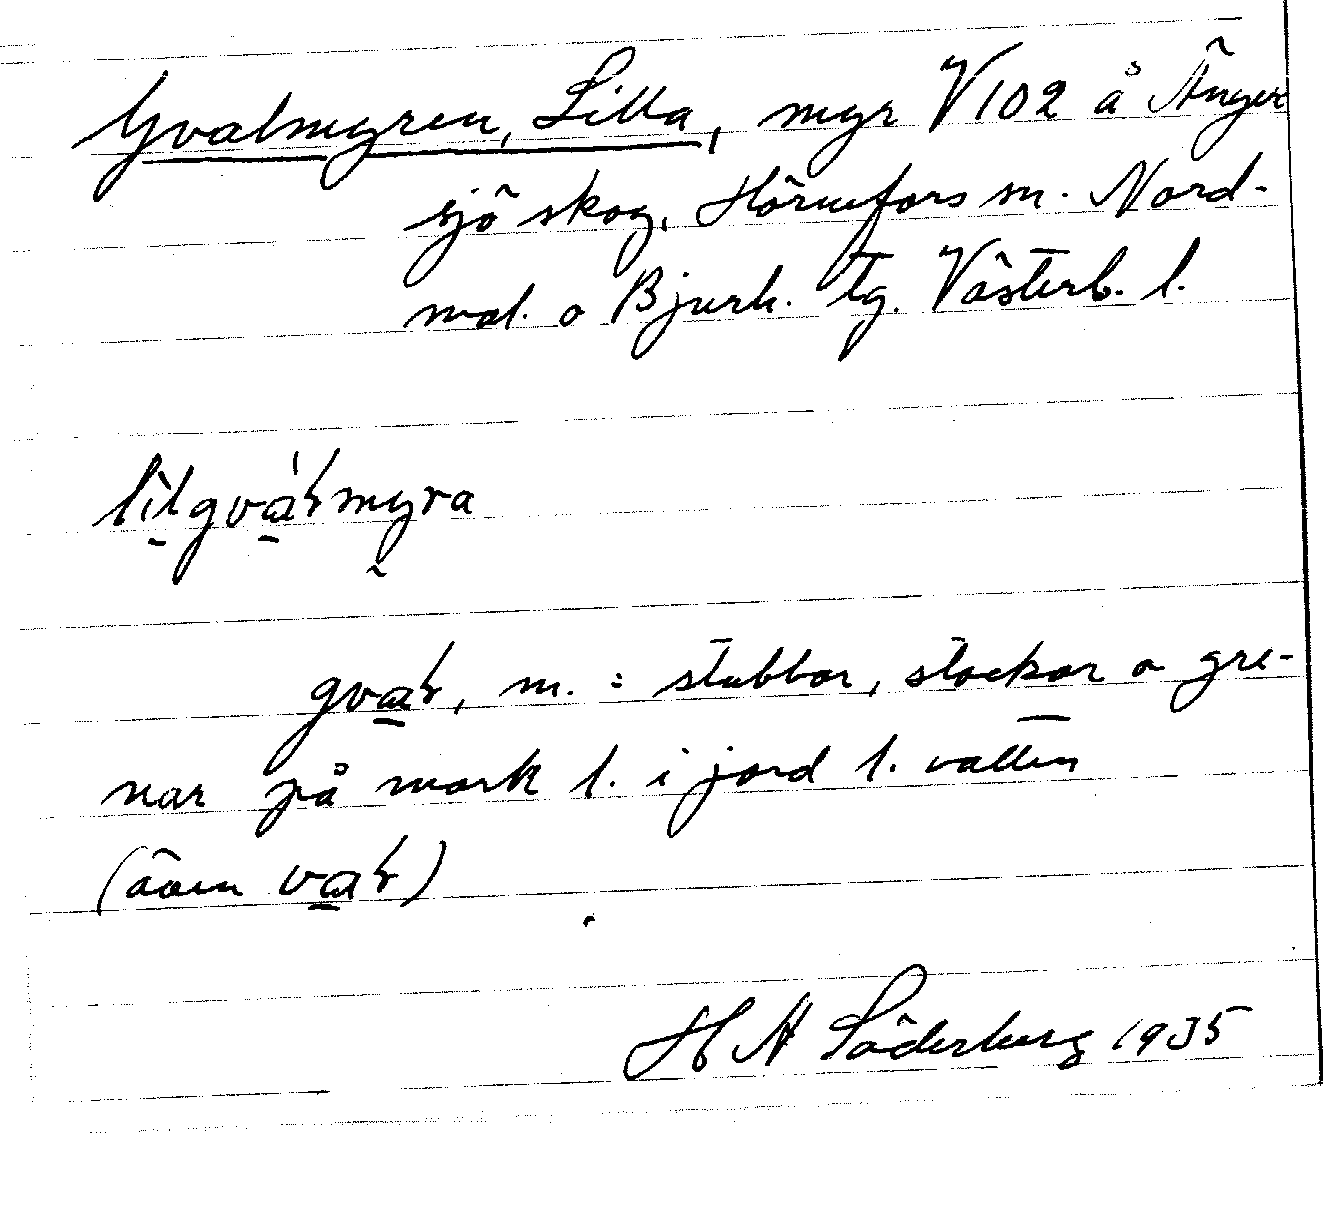 Gvalmyren, Lilla, myr V102 å Ånger
sjö skog, Hörnefors sn. Nord-
mal. o Bjurh. tg. Västerb. l.
lilgvaɫmyra
gvaɫ, m. : stubbar, stockar o gre-
nar på mark l. i jord l. vatten
(även vaɫ)
H A Söderberg 1935